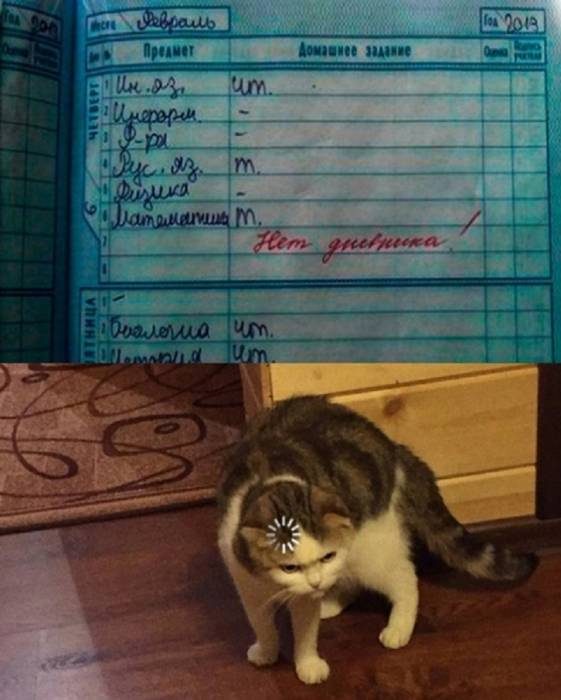 Год 2019
Месяц Февраль
Год 2019
Оценка Подпись учителя
Дни № Предмет Домашнее задание Оценка Подпись учителя
ЧЕТВЕРГ
6
1 Ин. яз. чт.
2 Информ. -
3 Ф-ра -
4 Рус. яз. т.
5 Физика -
6 Математика т.
7 Нет дневника!
8
ПЯТНИЦА
1 -
2 Биология чт.
3 История чт.